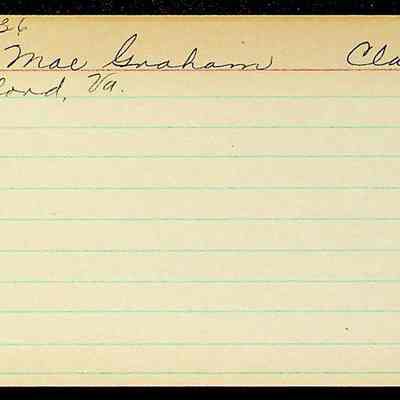 36
Mae Graham Cla
ford, Va.